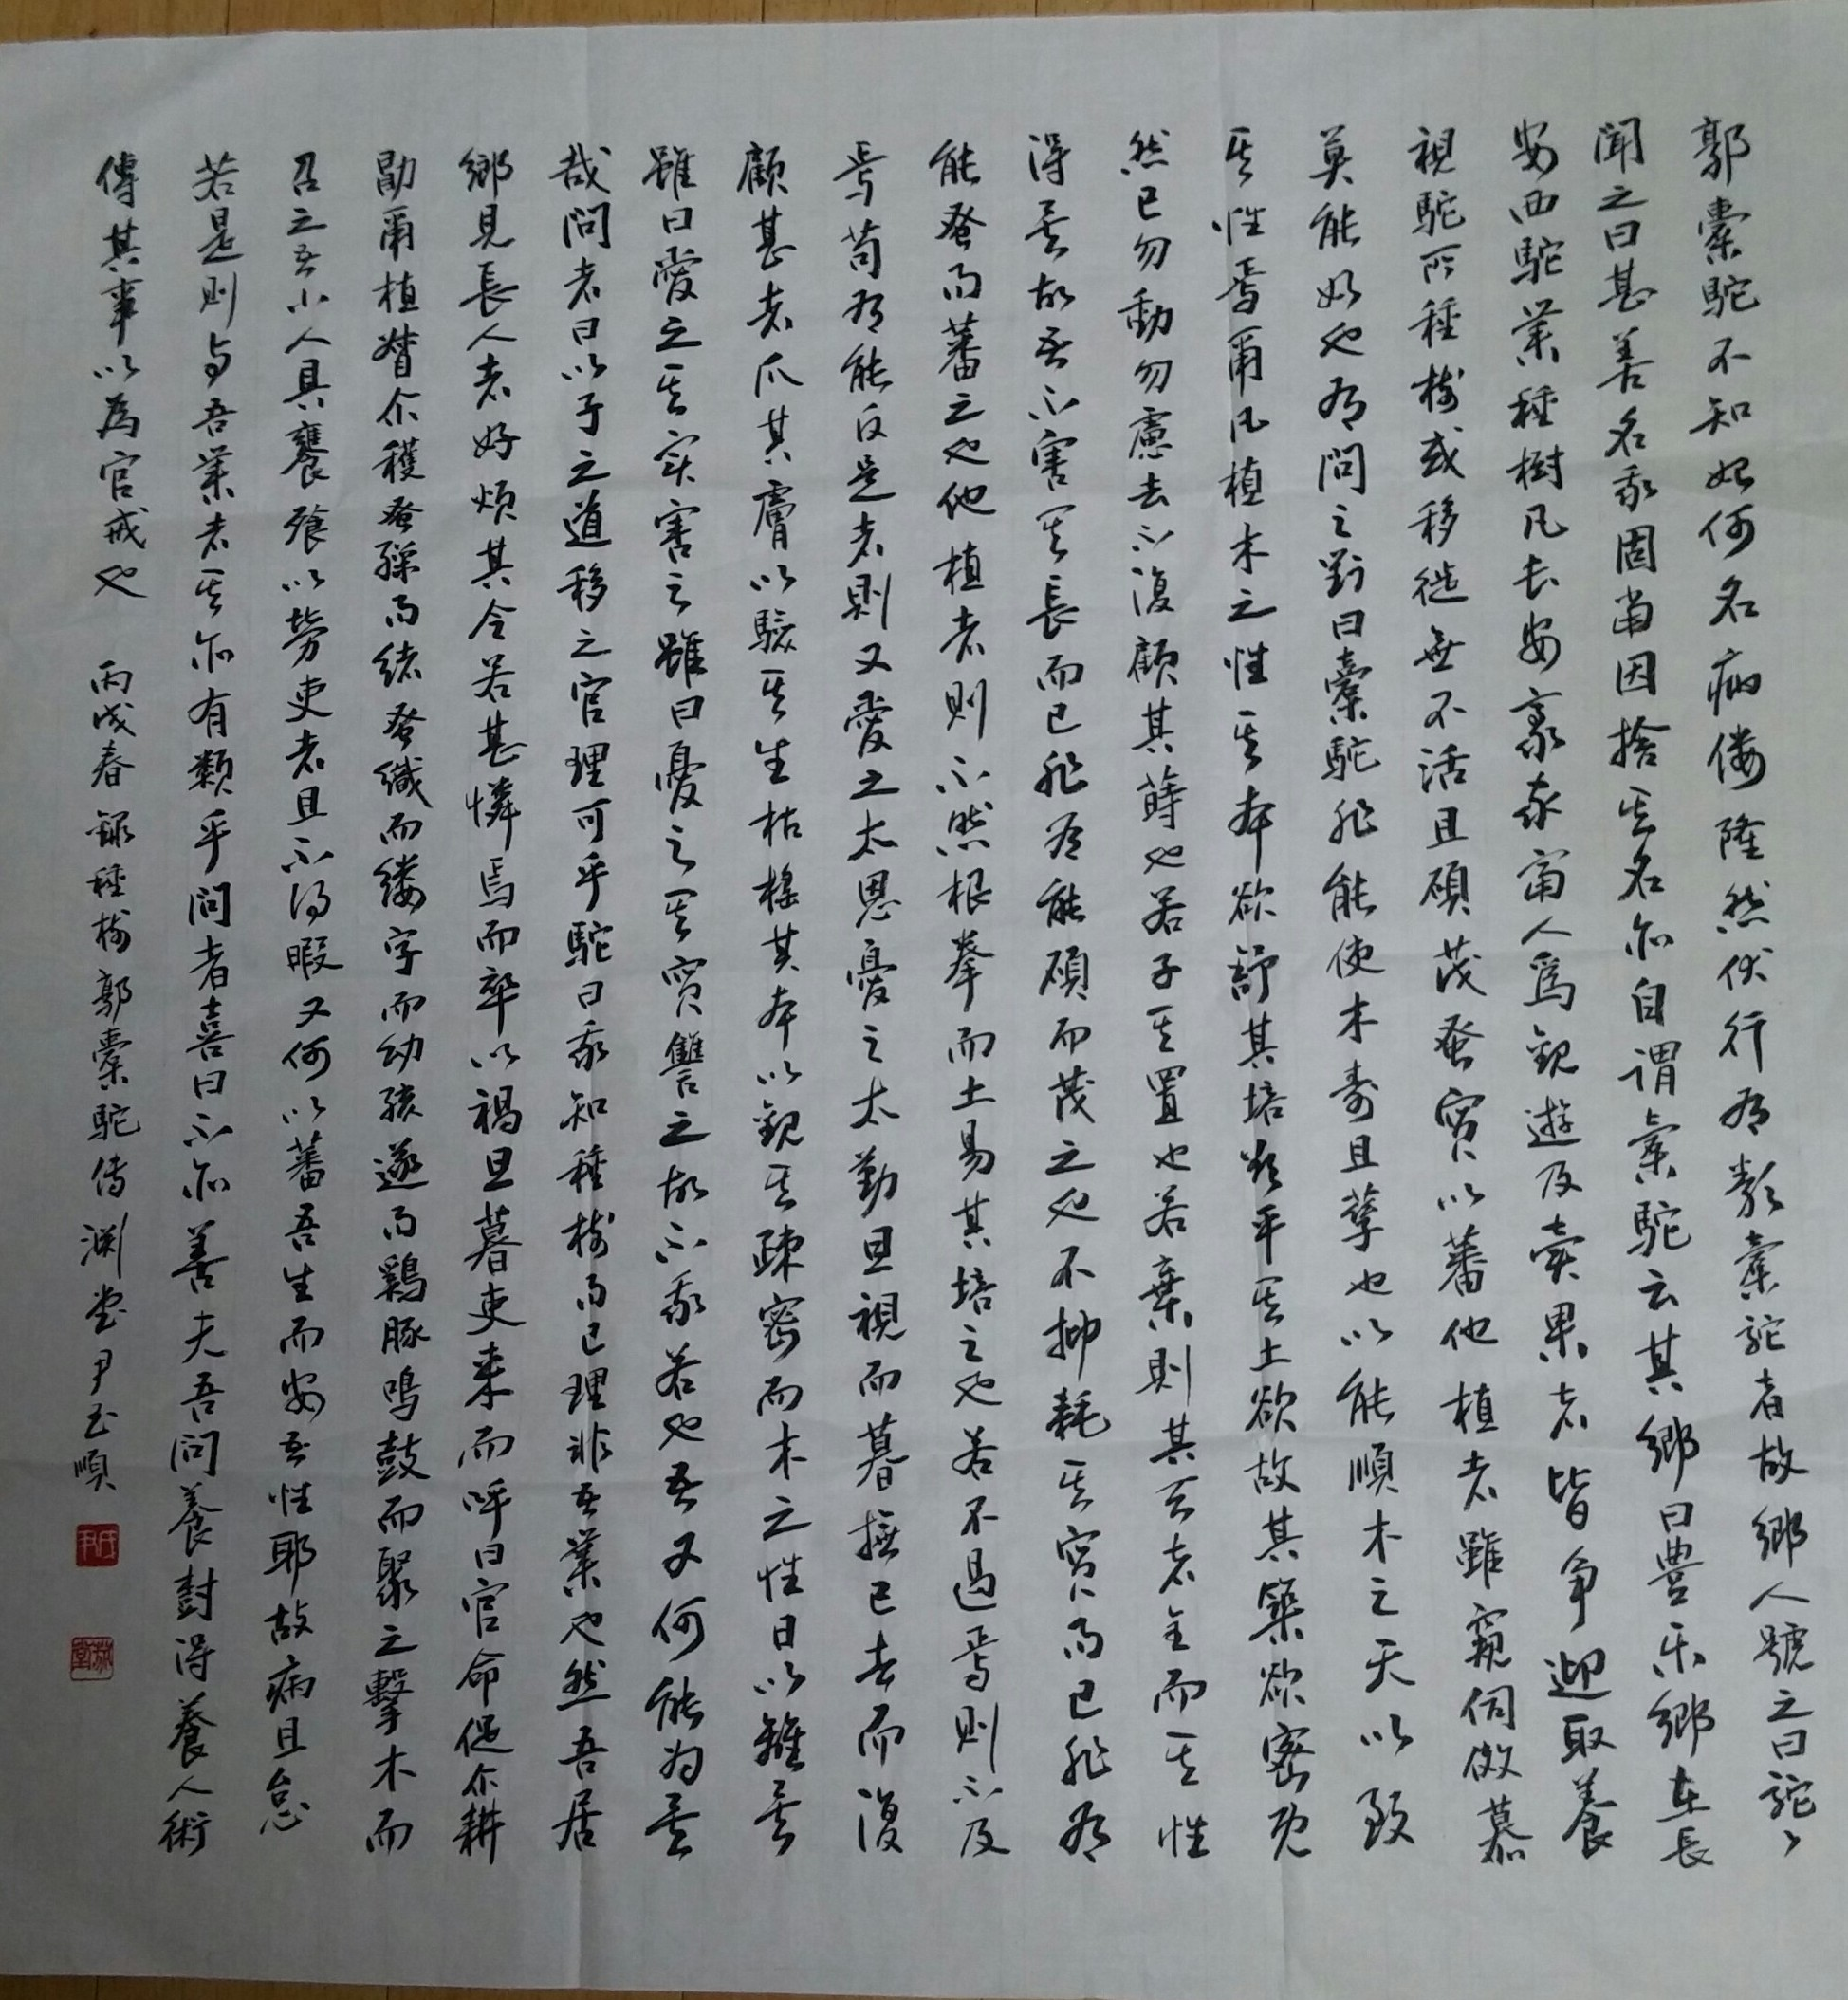 郭橐駝不知始何名病僂隆然伏行有類橐駝者故鄉人號之曰駝〻
聞之曰甚善名我固當因捨其名亦自謂橐駝云其鄉曰豊乐鄉在長
安西駝業種樹凡長安豪家富人爲觀遊及賣果者皆爭迎取養
視駝所種樹或移徙無不活且碩茂蚤實以蕃他植者雖窺伺傚慕
莫能如也有問之對曰橐駝非能使木壽且孳也以能順木之天以致
其性焉爾凡植木之性其本欲舒其培欲平其土欲故其築欲密既
然已勿動勿慮去不復顧其蒔也若子其置也若棄則其天者全而其性
得矣故吾不害其長而已非有能碩而茂之也不抑耗其實而已非有
能蚤而蕃之也他植者則不然根拳而土易其培之也若不過焉則不及
焉苟有能反是者則又愛之太恩憂之太勤旦視而暮撫已去而復
顧甚者爪其膚以驗其生枯搖其本以觀其疎密而木之性日以離矣
雖曰愛之其実害之雖曰憂之其實讐之故不我若也吾又何能为矣
哉問者曰以子之道移之官理可乎駝曰我知種樹而已理非吾業也然吾居
鄉見長人者好煩其令若甚憐焉而卒以禍旦暮吏来而呼曰官命促尔耕
勖爾植督尔穫蚤繅而緒蚤織而縷字而幼孩遂而鷄豚鳴鼓而聚之擊木而
召之吾小人具饔飧以勞吏者且不得暇又何以蕃吾生而安吾性耶故病且怠
若是則与吾業者其亦有類乎問者喜曰不亦善夫吾問養樹得養人術
傳其事以為官戒也 丙戌春錄種樹郭橐駝传 渊堂尹玉順